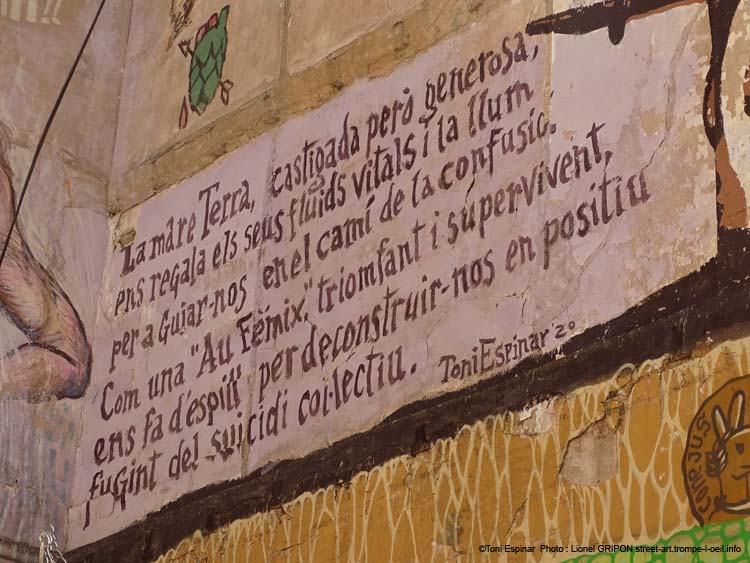 La mare Terra, castigada però generosa,
ens regala els seus fluids vitals i la llum
per a Guiar-nos en el camí de la confusió.
Com una "Au Fèmix", triomfant i supervivent,
ens fa d'espill per deconstruir-nos en positiu
fugint del suicidi col·lectiu.
Toni Espinar 20
CONE JUS
©Toni Espinar Photo : Lionel GRIPON street-art.trompe-l-oeil.info